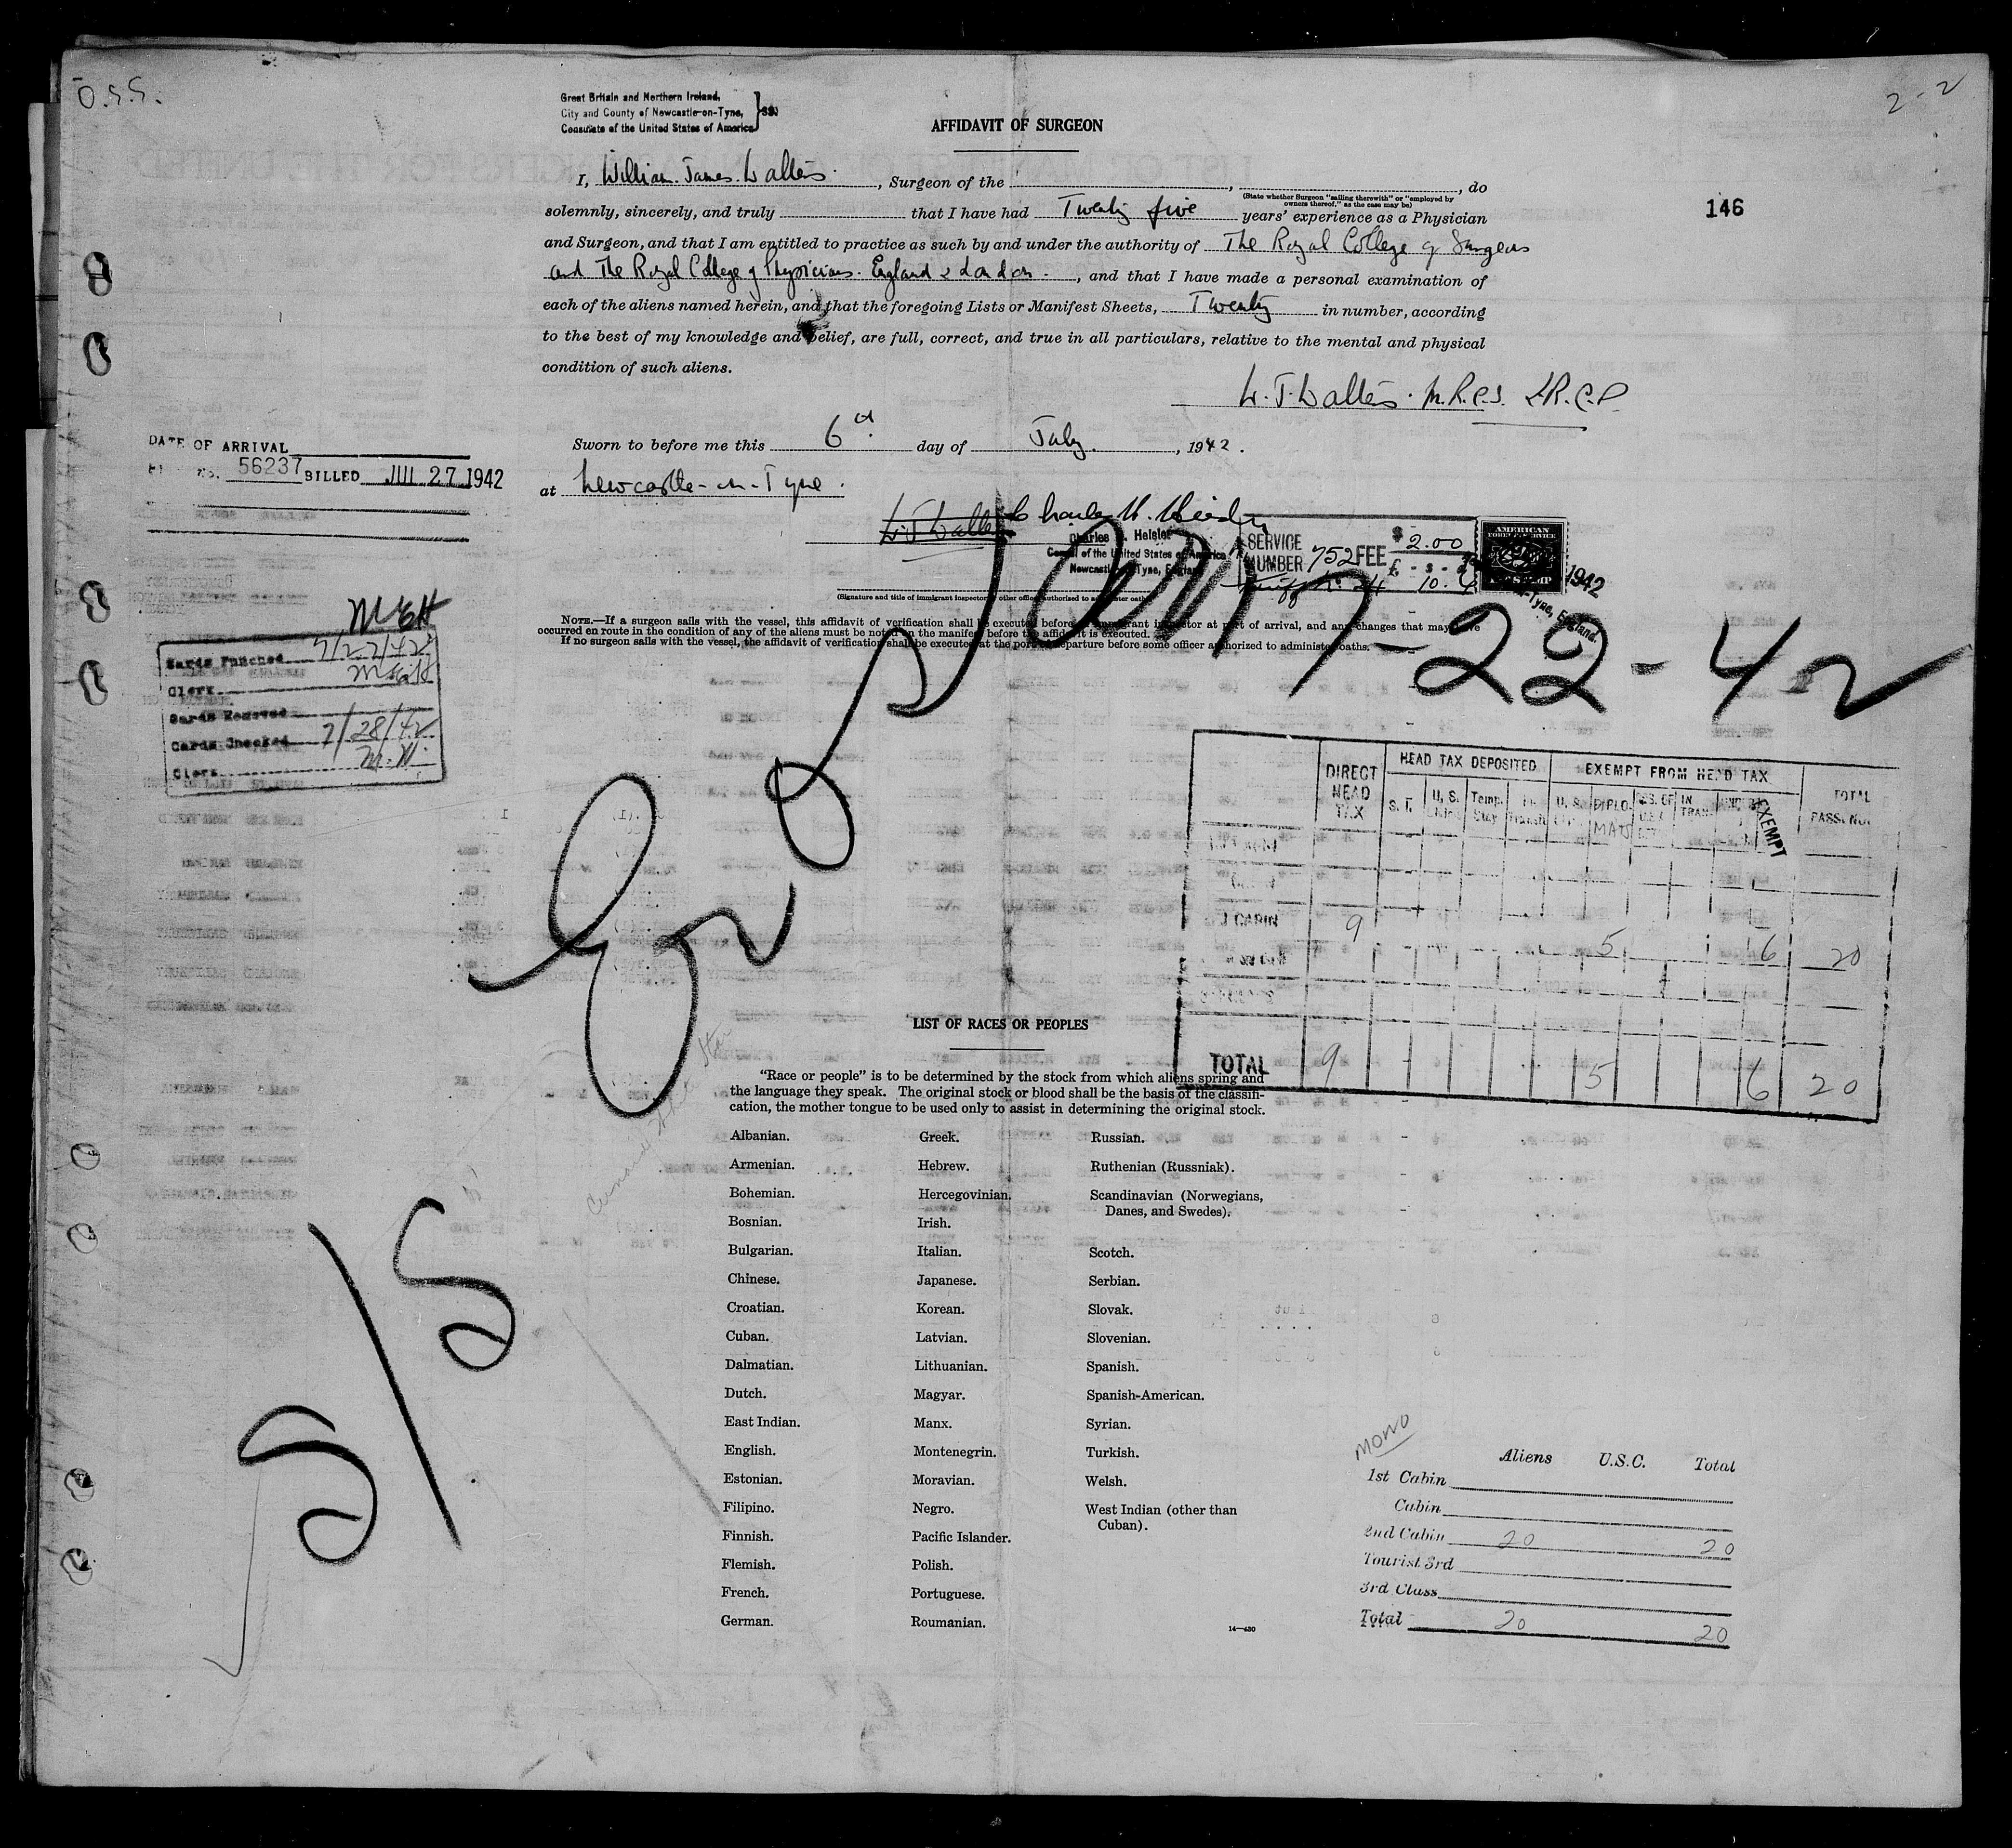 O.S.S.
2-2
Great Britain and Northern Ireland,
City and County of Newcastle-on-Tyne,
Consulate of the United States of America
SS:
AFFIDAVIT OF SURGEON
146
I, William James Walters, Surgeon of the , , do
(State whether Surgeon "sailing therewith" or "employed by owners thereof," as the case may be)
solemnly, sincerely, and truly that I have had Twenty five years' experience as a Physician
and Surgeon, and that I am entitled to practice as such by and under the authority of The Royal College of Surgeons
and The Royal College of Physicians. England & London., and that I have made a personal examination of
each of the aliens named herein, and that the foregoing Lists or Manifest Sheets, Twenty in number, according
to the best of my knowledge and belief, are full, correct, and true in all particulars, relative to the mental and physical
condition of such aliens.
W. J. Walters. M.R.C.S. L.R.C.P.
Sworn to before me this 6 day of July, 1942.
at Newcastle-on-Tyne.
DATE OF ARRIVAL
no. 56237 BILLED JUL 27 1942
W. J. Walters
Charles H. Heisler
Charles H. Heisler
Consul of the United States of America
Newcastle-on-Tyne, England
SERVICE NUMBER 752 FEE $ 2.00
£ - s - d
Tariff No. 24 10. 6
AMERICAN
FOREIGN SERVICE
1942
Tyne, England
(Signature and title of immigrant inspector or other officer authorized to administer oaths)
NOTE.—If a surgeon sails with the vessel, this affidavit of verification shall be executed before an immigrant inspector at port of arrival, and any changes that may have
occurred en route in the condition of any of the aliens must be noted on the manifest before the affidavit is executed.
If no surgeon sails with the vessel, the affidavit of verification shall be executed at the port of departure before some officer authorized to administer oaths.
7-22-42
McH
Cards Punched 7/27/42
Clerk
Cards Removed
Cards Checked 7/28/42
Clerk M.H.
DIRECT HEAD TAX
HEAD TAX DEPOSITED
EXEMPT FROM HEAD TAX
TOTAL
S.T. U.S. Temp. Stay U.S. DIPLO- MATS IN TRAN. EXEMPT
CABIN 9 5 6 20
TOTAL 9 5 6 20
LIST OF RACES OR PEOPLES
"Race or people" is to be determined by the stock from which aliens spring and
the language they speak. The original stock or blood shall be the basis of the classifi-
cation, the mother tongue to be used only to assist in determining the original stock.
Albanian.
Armenian.
Bohemian.
Bosnian.
Bulgarian.
Chinese.
Croatian.
Cuban.
Dalmatian.
Dutch.
East Indian.
English.
Estonian.
Filipino.
Finnish.
Flemish.
French.
German.
Greek.
Hebrew.
Hercegovinian.
Irish.
Italian.
Japanese.
Korean.
Latvian.
Lithuanian.
Magyar.
Manx.
Montenegrin.
Moravian.
Negro.
Pacific Islander.
Polish.
Portuguese.
Roumanian.
Russian.
Ruthenian (Russniak).
Scandinavian (Norwegians,
Danes, and Swedes).
Scotch.
Serbian.
Slovak.
Slovenian.
Spanish.
Spanish-American.
Syrian.
Turkish.
Welsh.
West Indian (other than
Cuban).
14—430
2/2
MONO
Aliens U.S.C. Total
1st Cabin
Cabin
2nd Cabin 20 20
Tourist 3rd
3rd Class
Total 20 20